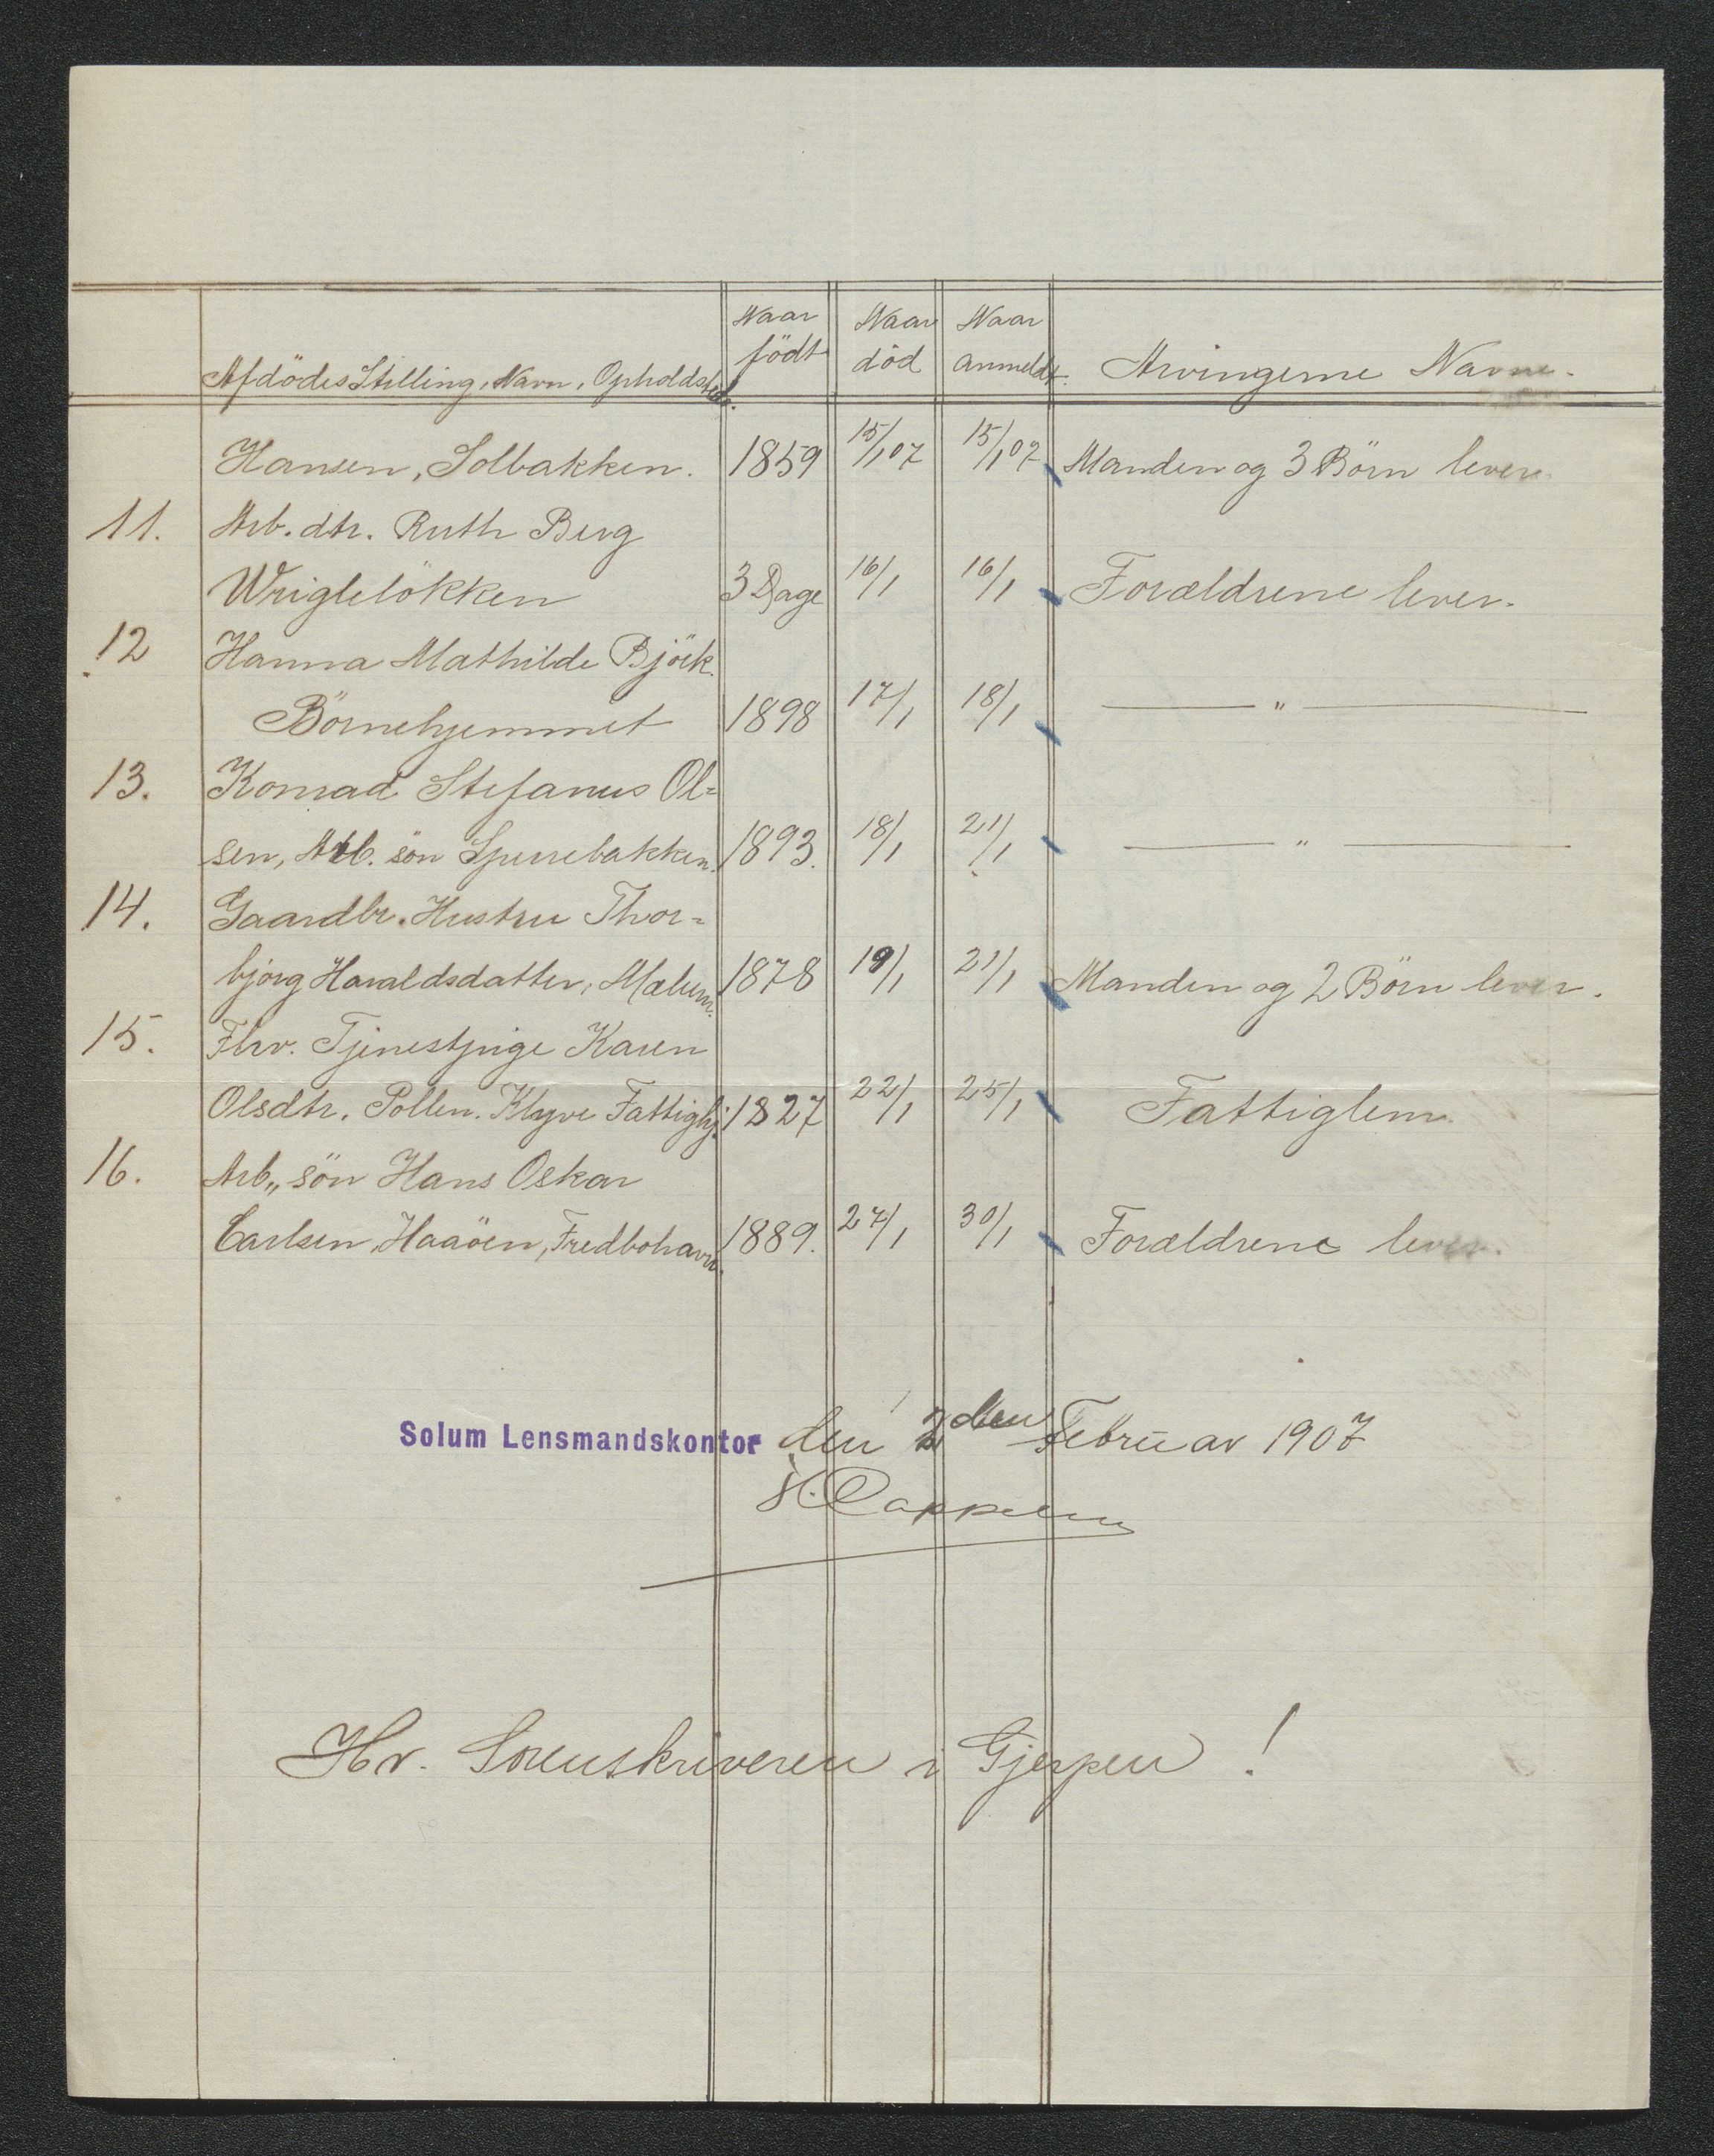 Naar Naar Naar
født død anmeldt. Arvingerne Navne.
Afdödes Stilling, Navn, Opholdsted.
Hansen, Solbakken. 1859 15/1 07 15/1 07 Manden og 3 Börn lever
11. Arb. dtr. Ruth Berg
Wriglelökken 3 Dage 16/1 16/1 Forældrene lever.
12 Hanna Mathilde Björk.
Börnehjemmet 1898 17/1 18/1 — " —
13. Konrad Stefanus Ol=
sen, Arb. sön Spurrebakken. 1893. 18/1 21/1 — " —
14. Gaardbr. Hustru Thor=
björg Haraldsdatter, Mælum. 1878 19/1 21/1 Manden og 2 Börn lever.
15. Fhv. Tjenestpige Karen
Olsdtr. Pollen. Klyve Fattighj. 1827 22/1 25/1 Fattiglem.
16. Arb„ sön Hans Oskar
Carlsen, Haaöen, Fredbohavn. 1889. 27/1 30/1 Forældrene lever.
Solum Lensmandskontor den 2den Februar 1907
H. Cappelen
Hr. Sorenskriveren i Gjerpen!